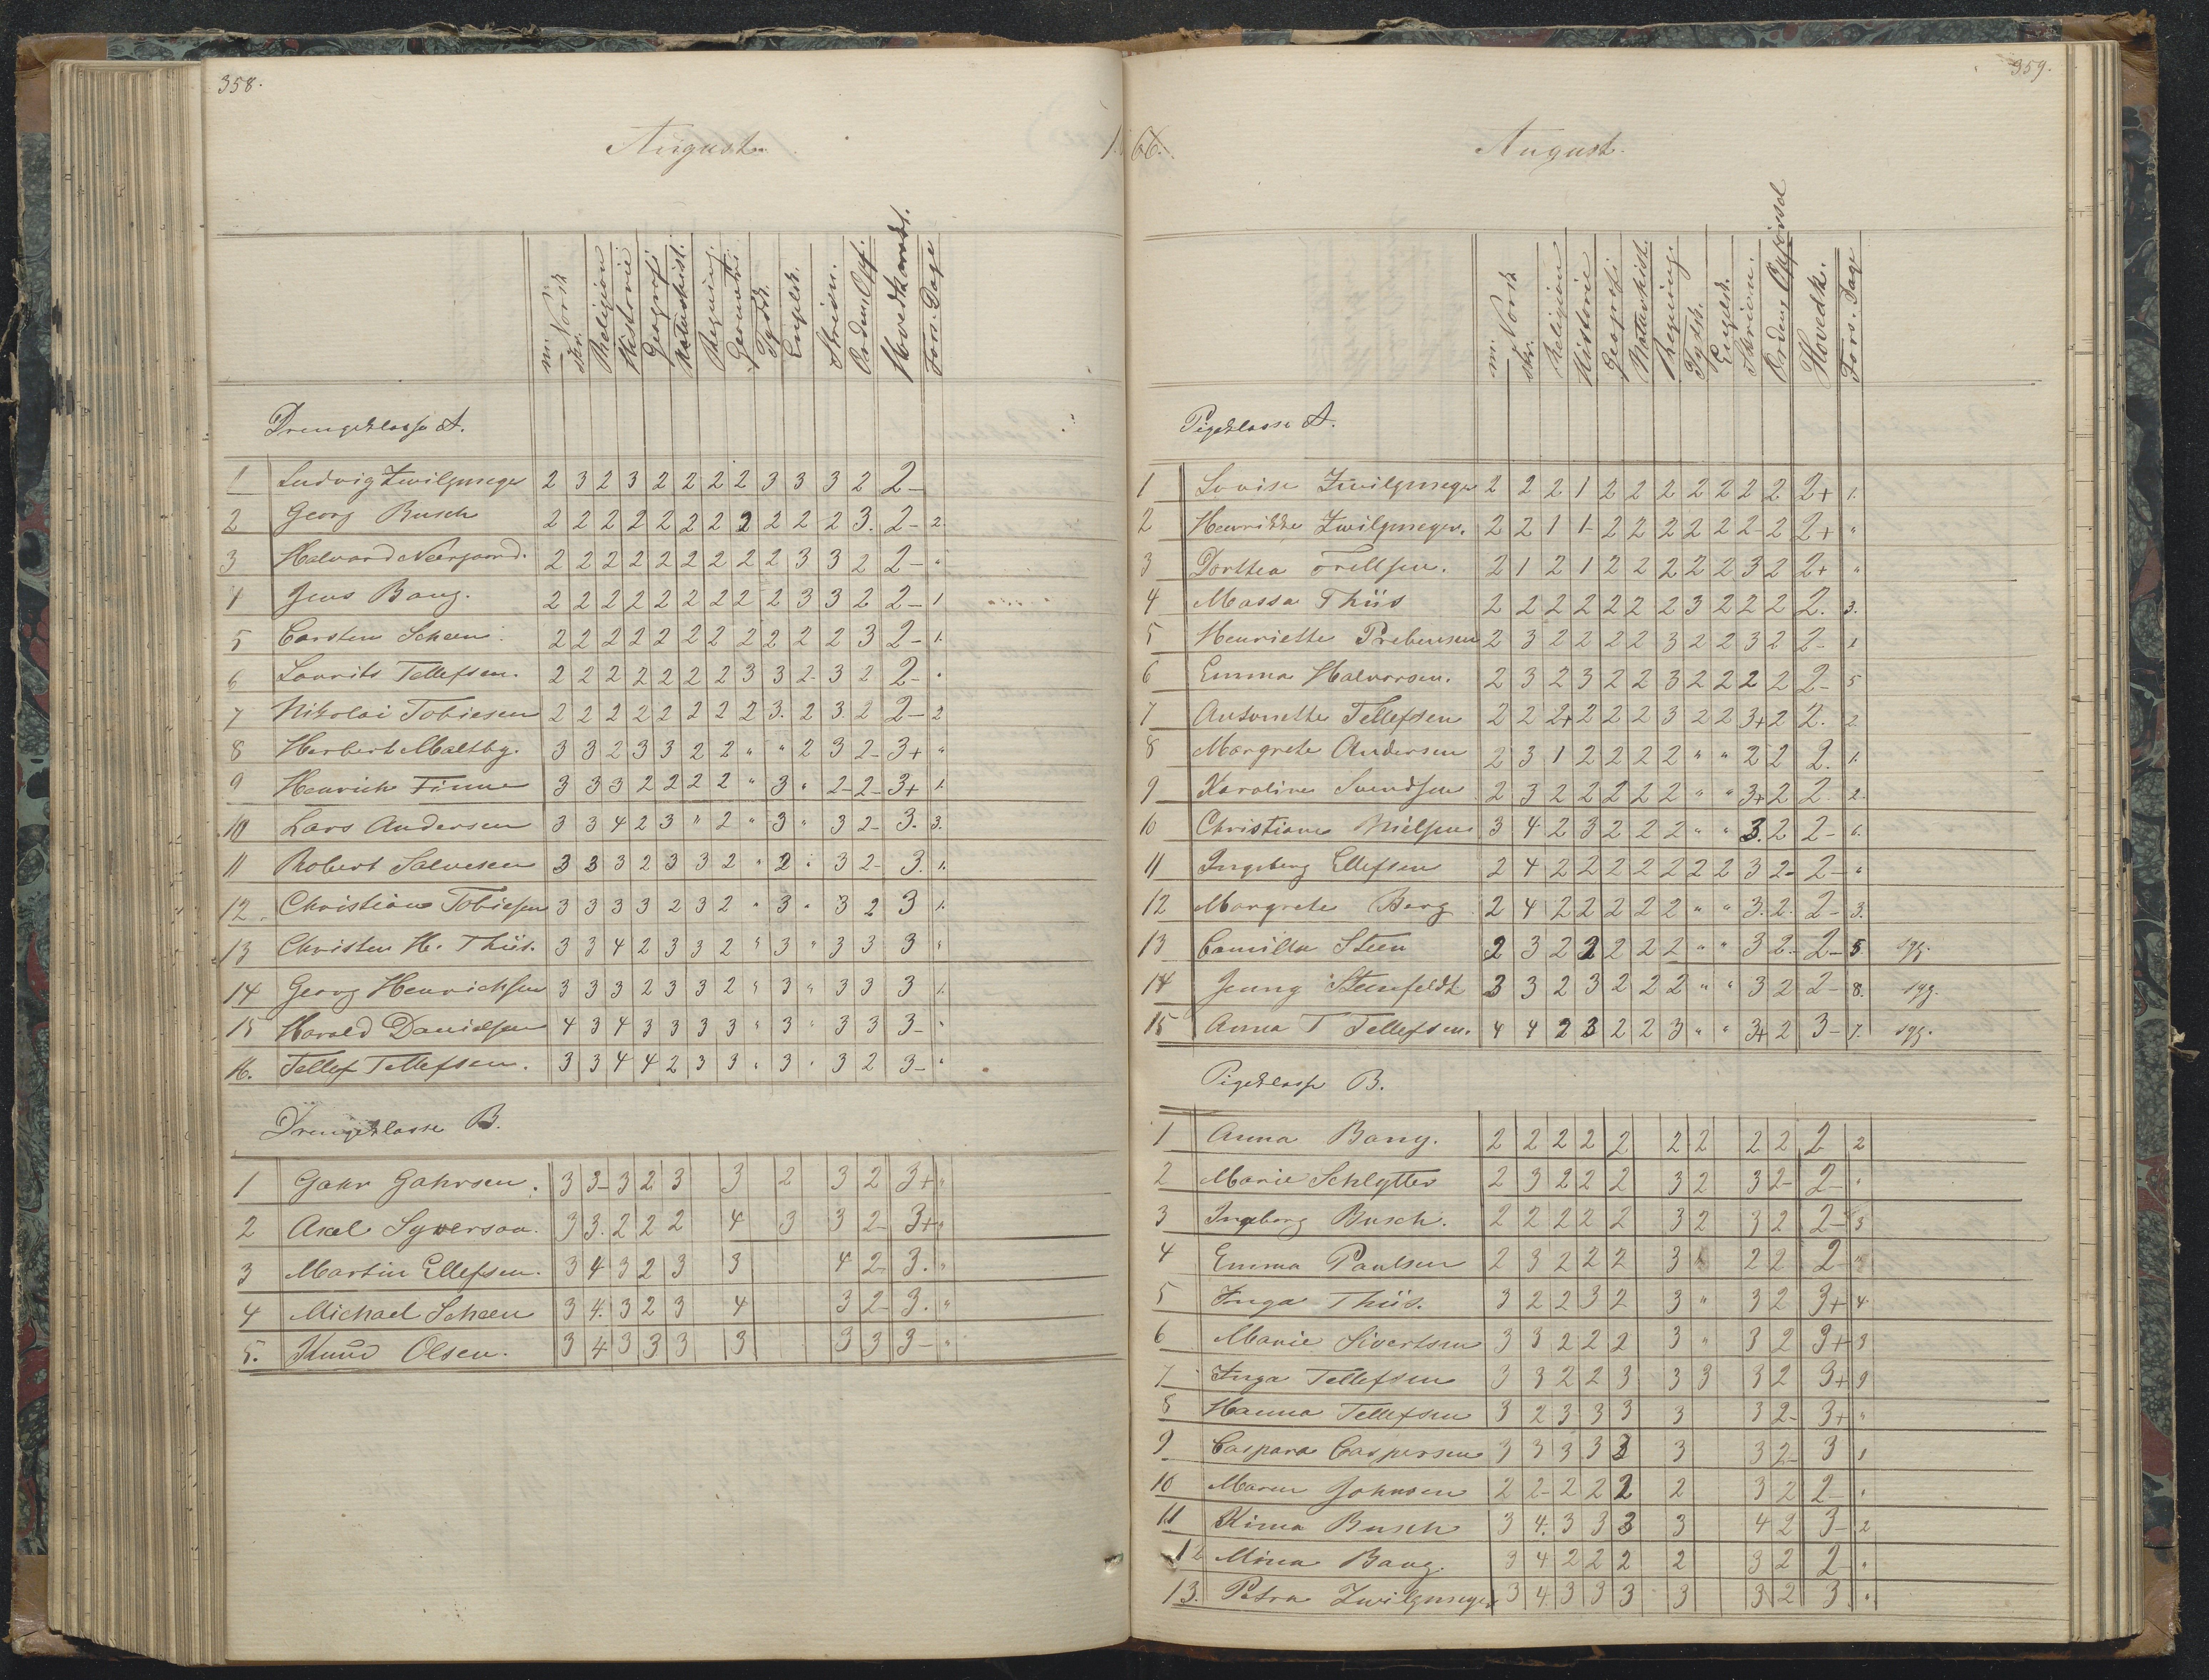 358.
August
m. Norsk skr. Religion Historie Geografi Naturhist. Regning Geometri Tydsk. Engelsk. Skrivn. Orden. Opf. Hovedkarakt. Fors. Dage
Drengeklasse A.
1 Ludvig Zwilgmeyer 2 3 2 3 2 2 2 2 3 3 3 2 2-
2 Georg Busch 2 2 2 2 2 2 2 2 2 2 2 3. 2- 2.
3 Halvard Neergaard. 2 2 2 2 2 2 2 2 2 3 3 2 2- "
4 Jens Bang. 2 2 2 2 2 2 2 2 2 3 3 2 2- 1
5 Carsten Scheen. 2 2 2 2 2 2 2 2 2 2 2 3 2- 1.
6 Laurits Tellefsen. 2 2 2 2 2 2 2 3 3 2- 3 2 2- "
7 Nikolai Tobiesen 2 2 2 2 2 2 2 2 3. 2 3. 2 2- 2
8 Herbert Maltby. 3 3 2 3 3 2 2 " " 2 3 2- 3+ "
9 Henrich Finne 3 3 3 2 2 2 2 " 3 " 2- 2- 3+ 1.
10 Lars Andersen 3 3 4 2 3 " 2 " 3 " 3 2- 3. 3.
11 Robert Salvesen 3 3 3 2 3 3 2 " 2 " 3 2- 3. 1.
12 Christian Tobiesen 3 3 3 3 2 3 2 " 3 " 3 2 3 1.
13 Christen H. Thiis. 3 3 4 2 3 3 2 " 3 " 3 3 3 "
14 Georg Henrichsen 3 3 3 2 3 3 2 " 3 " 3 3 3 1.
15 Harald Danielsen 4 3 4 3 3 3 3 " 3 " 3 3 3- "
16. Tellef Tellefsen. 3 3 4 4 2 3 3 " 3 " 3 2 3- "
Drengeklasse B.
1 Gahr Gahrsen. 3 3- 3 2 3 3 2 3 2 3+ "
2 Axel Syversen. 3 3. 2 2 2 4 3 3 2- 3+ "
3 Martin Ellefsen. 3 4 3 2 3 3 4 2- 3. "
4 Michael Scheen 3 4. 3 2 3 4 3 2- 3. "
5. Knud Olsen. 3 4 3 3 3 3 3 3 3- "
359.
1866.
August.
m. Norsk skr. Religion Historie Geografi Naturhist. Regning. Tydsk. Engelsk. Skrivn. Orden. Opførsel Hovedk. Fors. Dage
Pigeklasse A.
1 Lovise Zwilgmeyer 2 2 2 1 2 2 2 2 2 2 2 2+ 1.
2 Henrikke Zwilgmeyer. 2 2 1 1- 2 2 2 2 2 2- 2 2+ "
3 Dorthea Trellsen. 2 1 2 1 2 2 2 2 2 3 2 2+ "
4 Massa Thiis 2 2 2 2 2 2 2 3 2 2 2 2. 3.
5 Henriette Prebensen 2 3 2 2 2 2 3 2 2 3 2 2- 1
6 Emma Halvorsen. 2 3 2 3 2 2 3 2 2 2 2 2- 5
7 Antonette Tellefsen 2 2 2+ 2 2 2 3 2 2 3+ 2 2. 2
8 Margrete Andersen 2 3 1 2 2 2 2 " " 2 2 2. 1.
9 Karoline Svendsen 2 3 2 2 2 2 2 " " 3+ 2 2. 2.
10 Christiane Nielsen 3 4 2 3 2 2 2 " " 3. 2 2- 6.
11 Ingeborg Ellefsen 2 4 2 2 2 2 2 2 2 3 2- 2- "
12 Margrete Berg 2 4 2 2 2 2 2 " " 3. 2. 2- 3.
13 Camilla Steen 2 3 2 2 2 2 2 " " 3 2- 2- 5. syg.
14 Jenny Steenfeldt 3 3 2 3 2 2 2 " " 3 2 2- 8. syg.
15 Anna T Tellefsen. 4 4 2 3 2 2 3 " " 3+ 2 3- 7. syg.
Pigeklasse B.
1 Anna Bang. 2 2 2 2 2 2 2 2 2 2 2
2 Marie Schlytter 2 3 2 2 2 3 2 3 2- 2- "
3 Ingeborg Busch. 2 2 2 2 2 3 2 3 2 2- 3
4 Emma Paulsen 2 3 2 2 2 3 " 2 2 2- "
5 Inga Thiis. 3 2 2 3 2 3 " 3 2 3+ 4.
6 Marie Sivertsen 3 3 2 2 2 3 " 3 2 3+ 3
7 Inga Tellefsen 3 3 2 2 3 3 3 3 2 3+ 9
8 Hanna Tellefsen 3 2 3 3 3 3 3 2- 3+ "
9 Caspara Caspersen 3 3 3 3 3 3 3 2- 3 1
10 Maren Johnsen 2 2- 2 2 2 2 3 2 2- "
11 Kima Busch 3 4. 3 3 3 3 4 2 3- 2
12 Mina Bang. 3 4 2 2 2 2 3 2 2- "
13. Petra Zwilgmeyer 3 4. 3 3 3 3 3 2 3. "